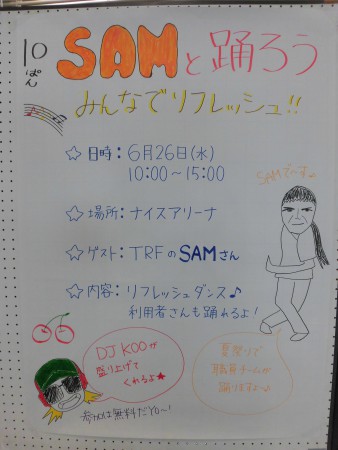 10ぱん
SAMと踊ろう
みんなでリフレッシュ!!
☆日時:6月26日(水)
10:00~15:00
☆場所:ナイスアリーナ
☆ゲスト:TRFのSAMさん
☆内容:リフレッシュダンス♪
利用者さんも踊れるよ!
SAMでーす
DJ KOOが
盛り上げて
くれるよ★
夏祭りで
職員チームが
踊りますよ~♪
参加は無料だよ~!